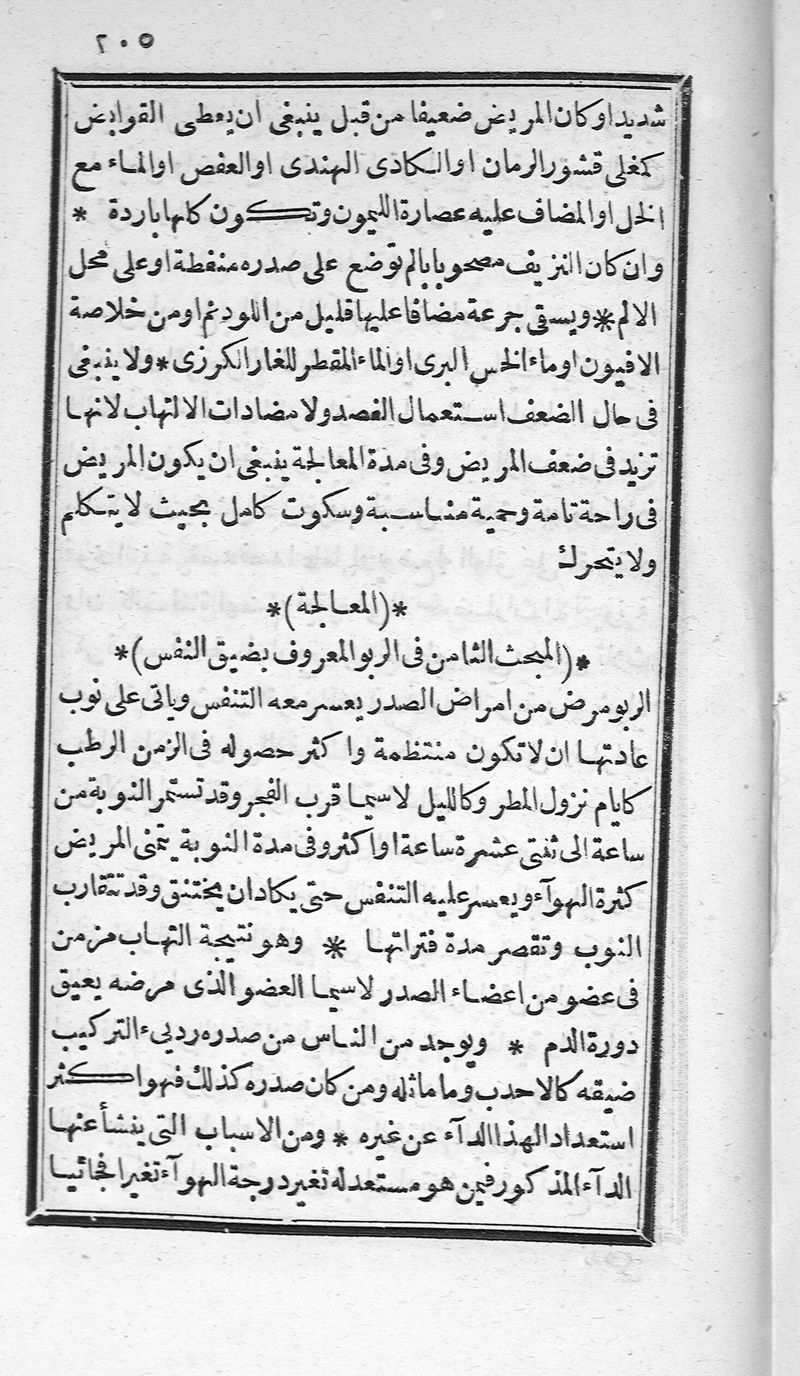 ٢٠٥
شديدا وكان المريض ضعيفا من قبل ينبغى ان يعطى القوابض
كمغلى قشور الرمان او الكادى الهندى او العفص او الماء مع
الخل او المضاف عليه عصارة الليمون وتكون كلها باردة *
وان كان النزيف مصحوبا بالم توضع على صدره منفطة او على محل
الالم * ويسقى جرعة مضافا عليها قليل من اللودنم او من خلاصة
الافيون او ماء الخس البرى او الماء المقطر للغار الكرزى * ولا ينبغى
فى حال الضعف استعمال الفصد ولا مضادات الالتهاب لانها
تزيد فى ضعف المريض وفى مدة المعالجة ينبغى ان يكون المريض
فى راحة تامة وحمية مناسبة وسكوت كامل بحيث لا يتكلم
ولا يتحرك
*(المعالجة)*
*(المبحث الثامن فى الربو المعروف بضيق النفس)*
الربو مرض من امراض الصدر يعسر معه التنفس وياتى على نوب
عادتها ان لا تكون منتظمة واكثر حصوله فى الزمن الرطب
كايام نزول المطر وكالليل لاسيما قرب الفجر وقد تستمر النوبة من
ساعة الى ثنتى عشرة ساعة او اكثر وفى مدة النوبة يتمنى المريض
كثرة الهوآء ويعسر عليه التنفس حتى يكاد ان يختنق وقد تتقارب
النوب وتقصر مدة فتراتها * وهو نتيجة التهاب مزمن
فى عضو من اعضاء الصدر لاسيما العضو الذى مرضه يعيق
دورة الدم * ويوجد من الناس من صدره ردىء التركيب
ضيقه كالاحدب وما ماثله ومن كان صدره كذلك فهو اكثر
استعدادا لهذا الدآء عن غيره * ومن الاسباب التى ينشأ عنها
الدآء المذكور فيمن هو مستعد له تغير درجة الهوآء تغيرا فجائيا